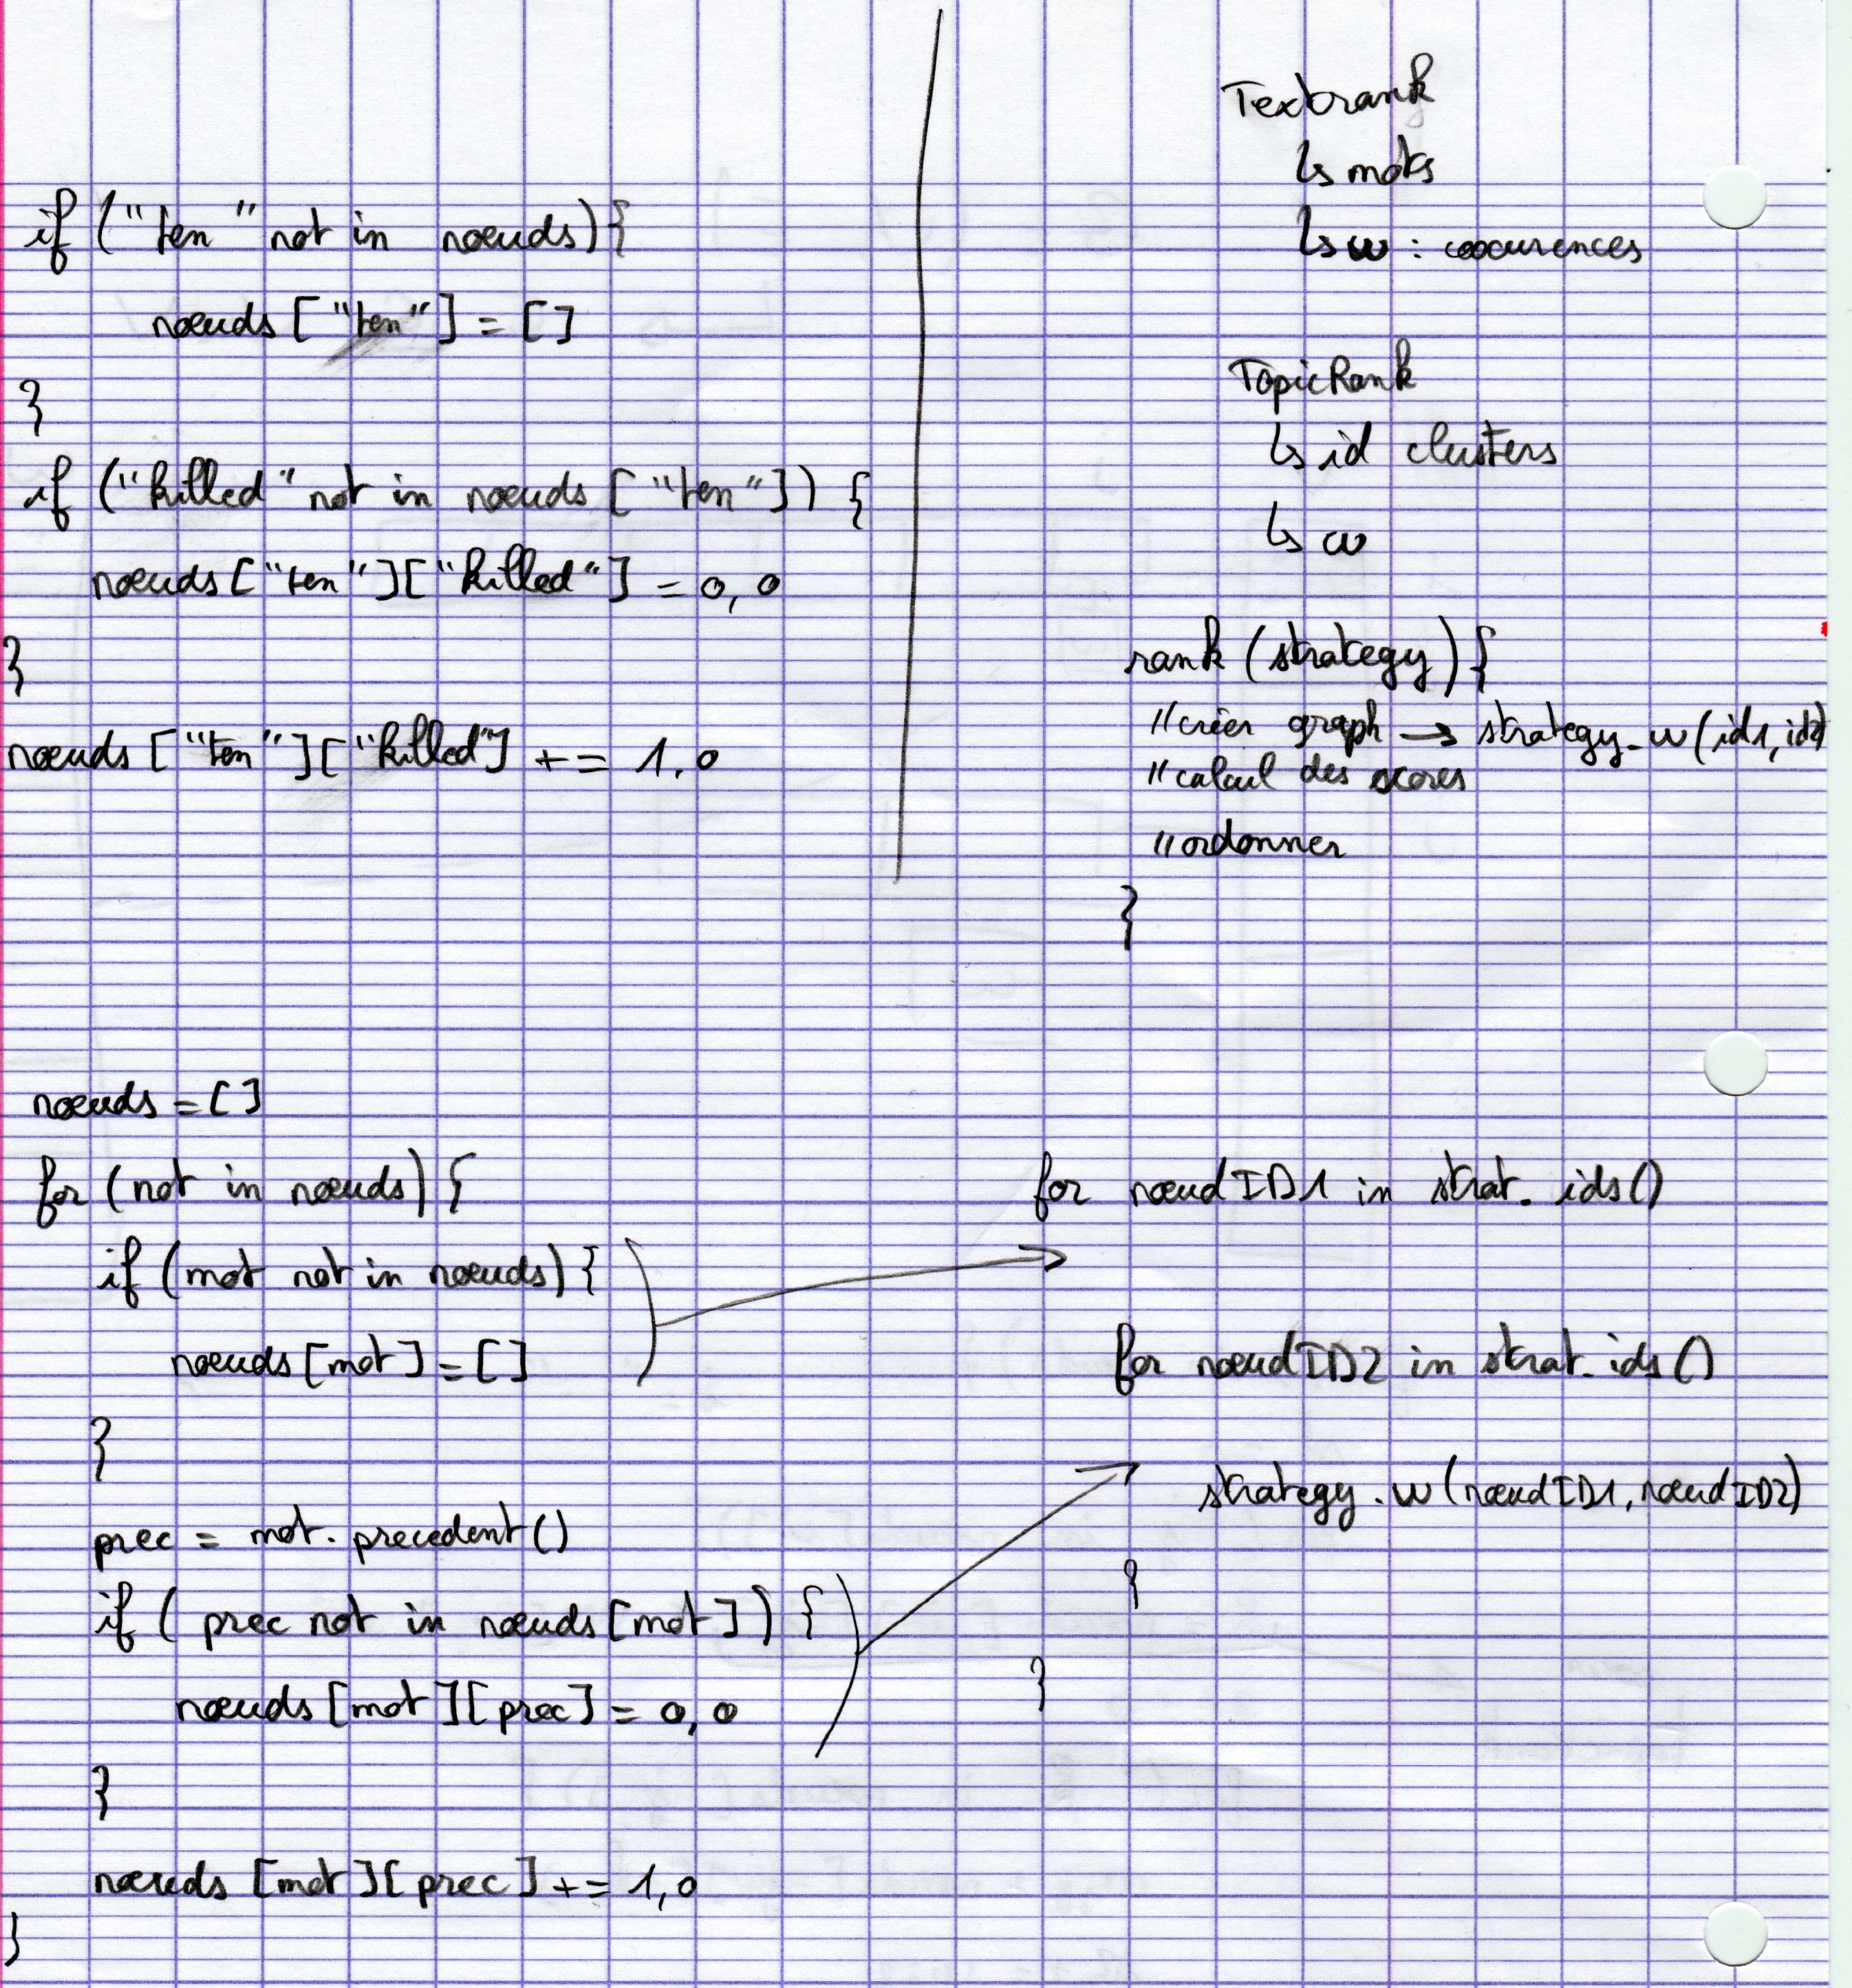 if ("ten" not in nœuds){
nœuds ["ten"] = []
}
if ("killed" not in nœuds ["ten"]) {
nœuds ["ten"]["killed"] = 0,0
}
nœuds ["ten"]["killed"] += 1,0
Textrank
↳ mots
↳ w : coocurences
TopicRank
↳ id clusters
↳ w
rank (strategy) {
// créer graph → strategy.w(id1, id2)
// calcul des scores
// ordonner
}
nœuds = []
for (mot in nœuds) {
if (mot not in nœuds) {
nœuds [mot] = []
}
prec = mot.precedent()
if ( prec not in nœuds [mot]) {
nœuds [mot][prec] = 0,0
}
nœuds [mot][prec] += 1,0
}
for nœudID1 in strat. ids()
for nœudID2 in strat. ids()
strategy.w(nœudID1, nœudID2)
}
}